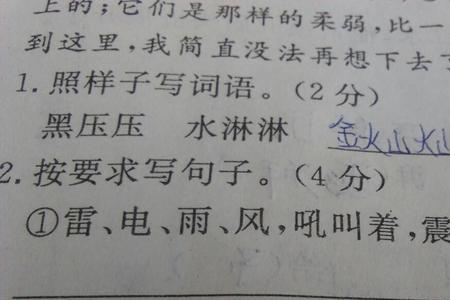 上的；它们是那样的柔弱，比一
到这里，我简直没法再想下去了
1.照样子写词语。（2分）
黑压压 水淋淋 金灿灿
2.按要求写句子。（4分）
①雷、电、雨、风，吼叫着，震